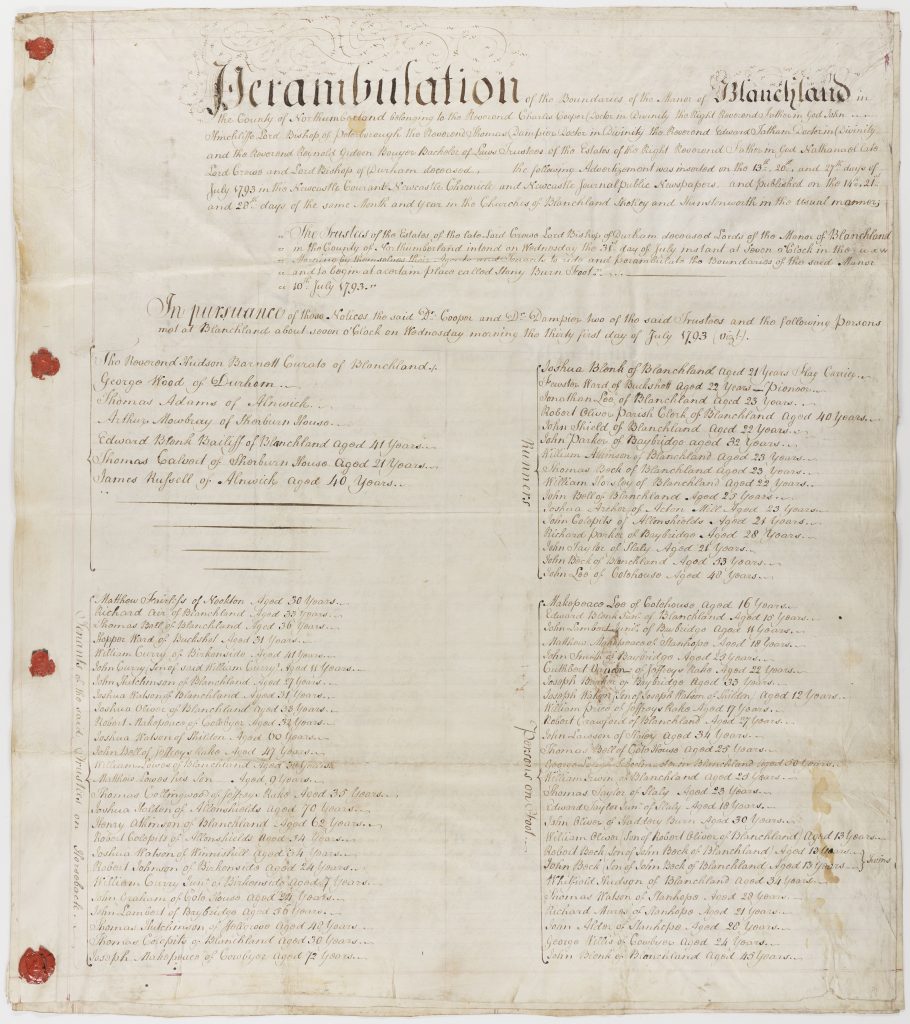 Perambulation of the Boundaries of the Manor of Blanchland in
the County of Northumberland belonging to the Reverend Charles Cooper Doctor in Divinity the Right Reverend Father in God John
Hinchliffe Lord Bishop of Peterborough the Reverend Thomas Dampier Doctor in Divinity the Reverend Edward Tatham Doctor in Divinity
and the Reverend Reynold Gideon Bouyer Bachelor of Laws Trustees of the Estates of the Right Reverend Father in God Nathanael late
Lord Crewe and Lord Bishop of Durham deceased, the following Advertizement was inserted on the 13th, 20th, and 27th days of
July 1793 in the Newcastle Courant Newcastle Chronicle and Newcastle Journal public Newspapers and published on the 14th, 21st
and 28th days of the same Month and year in the Churches of Blanchland and Hunstonworth in the usual manner,
" The Trustees of the Estates of the late Lord Crewe Lord Bishop of Durham deceased Lords of the Manor of Blanchland
" in the County of Northumberland intend on Wednesday the 31st day of July instant at Seven o'Clock in the
" Morning by themselves their Agents and Tenants to ride and perambulate the Boundaries of the said Manor
" and to begin at a certain place called Stony Burn Foot".
" 10th July 1793."
In pursuance of these Notices the said Dr. Cooper and Dr. Dampier two of the said Trustees and the following Persons
met at Blanchland about seven o'Clock on Wednesday morning the thirty first day of July 1793 (vizt).
The Reverend Hudson Barnett Curate of Blanchland.
George Wood of Durham
Thomas Adams of Alnwick
Arthur Mowbray of Sherburn House
Edward Blenk Bailiff of Blanchland Aged 41 Years
Thomas Calvert of Sherburn House Aged 21 Years
James Russell of Alnwick aged 40 Years
Runners
Joshua Blenk of Blanchland Aged 21 Years Flag Carrier
Ward of Buckshott Aged 22 Years Pioneer
Jonathan Lee of Blanchland Aged 23 Years
Robert Oliver Parish Clerk of Blanchland Aged 40 Years
John Shield of Blanchland Aged 22 Years
John Parker of Baybridge aged 32 Years
William Atkinson of Blanchland Aged 23 Years
Thomas Beck of Blanchland Aged 23 Years
William of Blanchland Aged 22 Years
John Bell of Blanchland Aged 25 Years
Joshua Archer of Acton Mill Aged 23 Years
John Colepits of Allonshields Aged 21 Years
Richard Parker of Baybridge Aged 28 Years
John Taylor of Slaly Aged 21 Years
John Beck of Blanchland Aged 53 Years
John Lee of Cotehouse Aged 40 Years
Tenants of the said Trustees on Horseback
Matthew Fairless of Aged 30 Years
Richard Air of Blanchland Aged 33 Years
Thomas Bell of Blanchland Aged 36 Years
Hopper Ward of Buckshot Aged 31 Years
William Curry of Birkenside Aged 41 Years
John Curry Son of said William Curry Aged 11 Years
John Hutchinson of Blanchland Aged 29 Years
Joshua Watson of Blanchland Aged 31 Years
Joshua Oliver of Blanchland Aged 38 Years
Robert Makepeace of Cowbyer Aged 32 Years
Joshua Watson of Shildon Aged 60 Years
John Bell of Jeffreys Rake Aged 47 Years
William Lowes of Blanchland Aged 38 Years
Matthew Lowes his Son Aged 9 Years
Thomas Collingwood of Jeffreys Rake Aged 35 Years
Joshua Holden of Allonshields Aged 70 Years
Henry Atkinson of Blanchland Aged 62 Years
Robert Colepits of Allonshields Aged 34 Years
Joshua Watson of Winnishill Aged 34 Years
Robert Johnson of Birkenside Aged 24 Years
William Curry Junr. of Birkenside Aged 7 Years
John Graham of Cote House Aged 24 Years
John Lambert of Baybridge Aged 56 Years
Thomas Hutchinson of Aged 40 Years
Thomas Colepits of Blanchland Aged 30 Years
Joseph Makepeace of Cowbyer Aged 72 Years
Persons on Foot
Makepeace Lee of Cotehouse Aged 16 Years
Edward Blenk Junr. of Blanchland Aged 15 Years
John Lambert Junr. of Baybridge Aged 11 Years
Matthew of Stanhope Aged 18 Years
John Smith of Baybridge Aged 23 Years
Cuthbert of Jeffreys Rake Aged 22 Years
Joseph of Baybridge Aged 33 Years
Joseph Watson Son of Joseph Watson of Shildon Aged 12 Years
William Price of Jeffreys Rake Aged 17 Years
Robert Crawford of Blanchland Aged 27 Years
John Lawson of Slaley Aged 34 Years
Thomas Bell of Cote House Aged 25 Years
George of Blanchland Aged 50 Years
William of Blanchland Aged 25 Years
Thomas Taylor of Slaly Aged 23 Years
Edward Taylor Junr. of Slaly Aged 18 Years
John Oliver of Burn Aged 30 Years
William Oliver Son of Robert Oliver of Blanchland Aged 13 Years
Robert Beck Son of John Beck of Blanchland Aged 13 Years
John Beck Son of John Beck of Blanchland Aged 13 Years
Twins
Whitfield Hudson of Blanchland Aged 34 Years
Thomas Watson of Stanhope Aged 28 Years
Richard of Stanhope Aged 21 Years
John Alder of Stanhope Aged 20 Years
George of Cowbyer Aged 24 Years
John Blenk of Blanchland Aged 45 Years